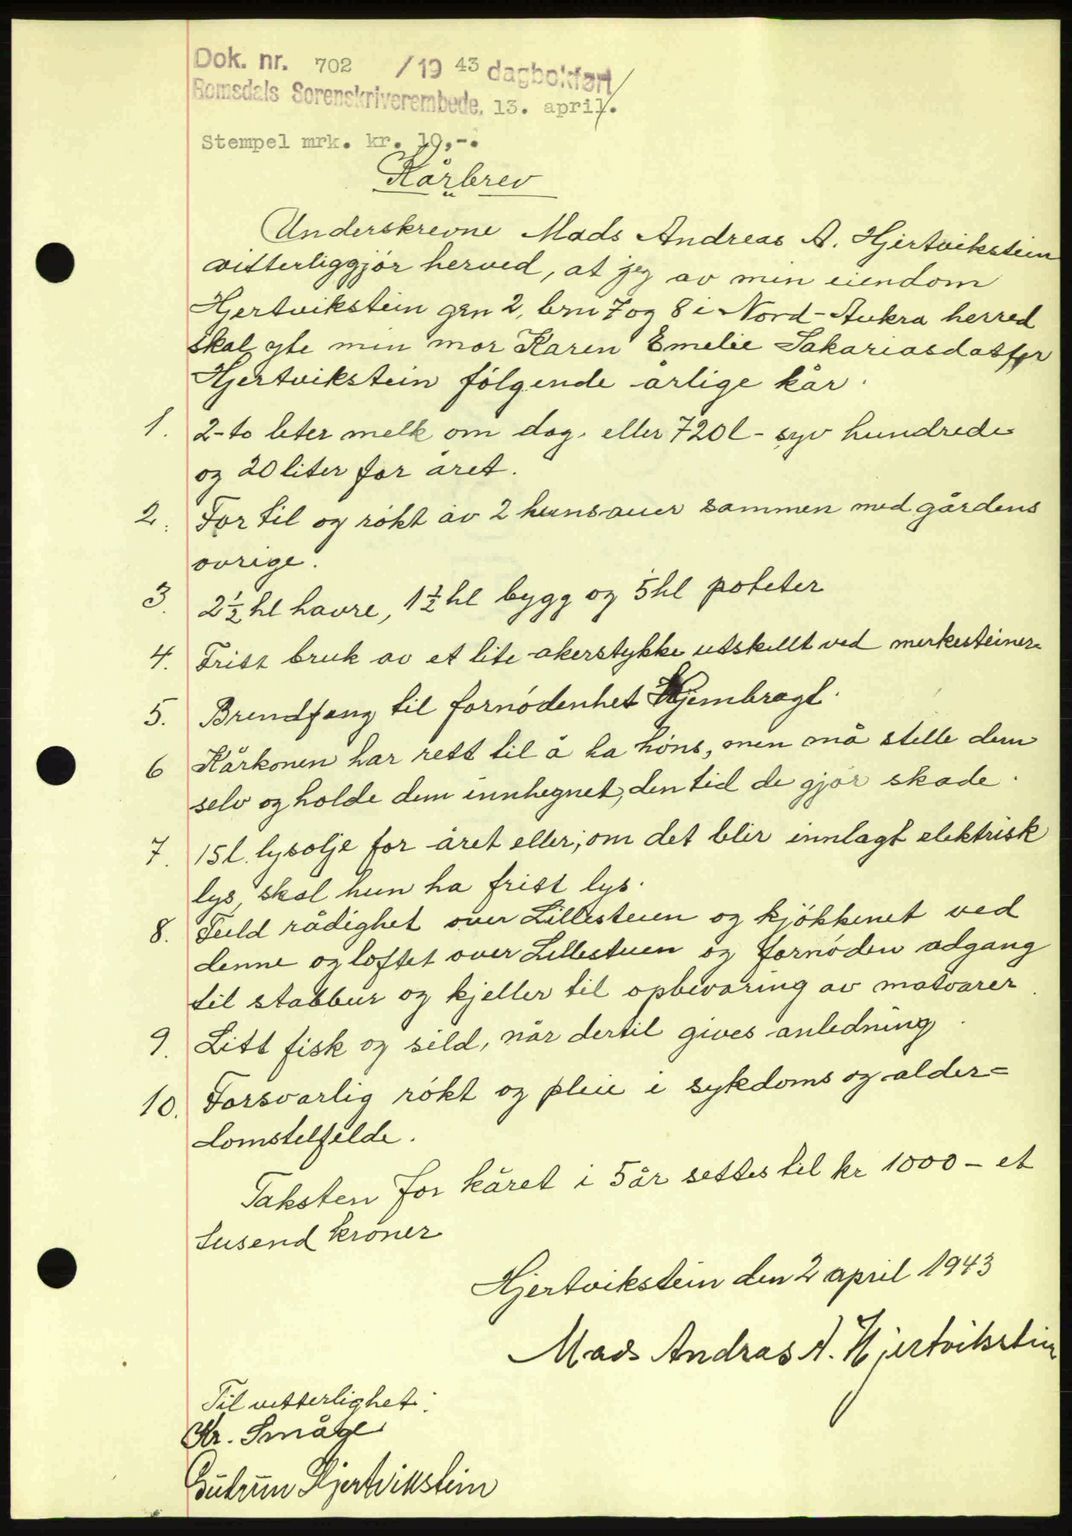 Dok. nr. 702 /19 43 dagbokført
Romsdals Sorenskriverembede, 13. april.
Stempel mrk. kr. 10,-.
Kårbrev
Underskrevne Mads Andreas A. Hjertvikstein
vitterliggjør herved, at jeg av min eiendom
Hjertvikstein grn 2, brn 7 og 8 i Nord-Aukra herred
skal yte min mor Karen Emelie Sakariasdatter
Hjertvikstein følgende årlige kår.
1. 2-to liter melk om dag. eller 720 l - syv hundrede
og 20 liter for året.
2. For til og røkt av 2 hunsauer sammen med gårdens
øvrige.
3. 2½ hl havre, 1½ hl bygg og 5 hl poteter
4. Fritt bruk av et lite akerstykke utskillt ved merkesteiner.
5. Brendfang til fornødenhet Hjembragt.
6 Kårkonen har rett til å ha høns, men må stelle dem
selv og holde dem innhegnet, den tid de gjør skade.
7. 15 l. lysolje for året eller, om det blir innlagt elektrisk
lys, skal hun ha fritt lys.
8. Full rådighet over Lillestuen og kjøkkenet ved
denne og loftet over Lillestuen og fornøden adgang
til stabbur og kjeller til opbevaring av matvarer.
9. Litt fisk og sild, når dertil gives anledning.
10. Forsvarlig røkt og pleie i sykdoms og alder=
domstilfelde.
Taksten for kåret i 5 år settes til kr 1000 - et
tusend kroner
Hjertvikstein den 2 april 1943
Mads Andras A. Hjertvikstein
Til vitterlighet:
Kr. Småge
Gudrun Hjertvikstein